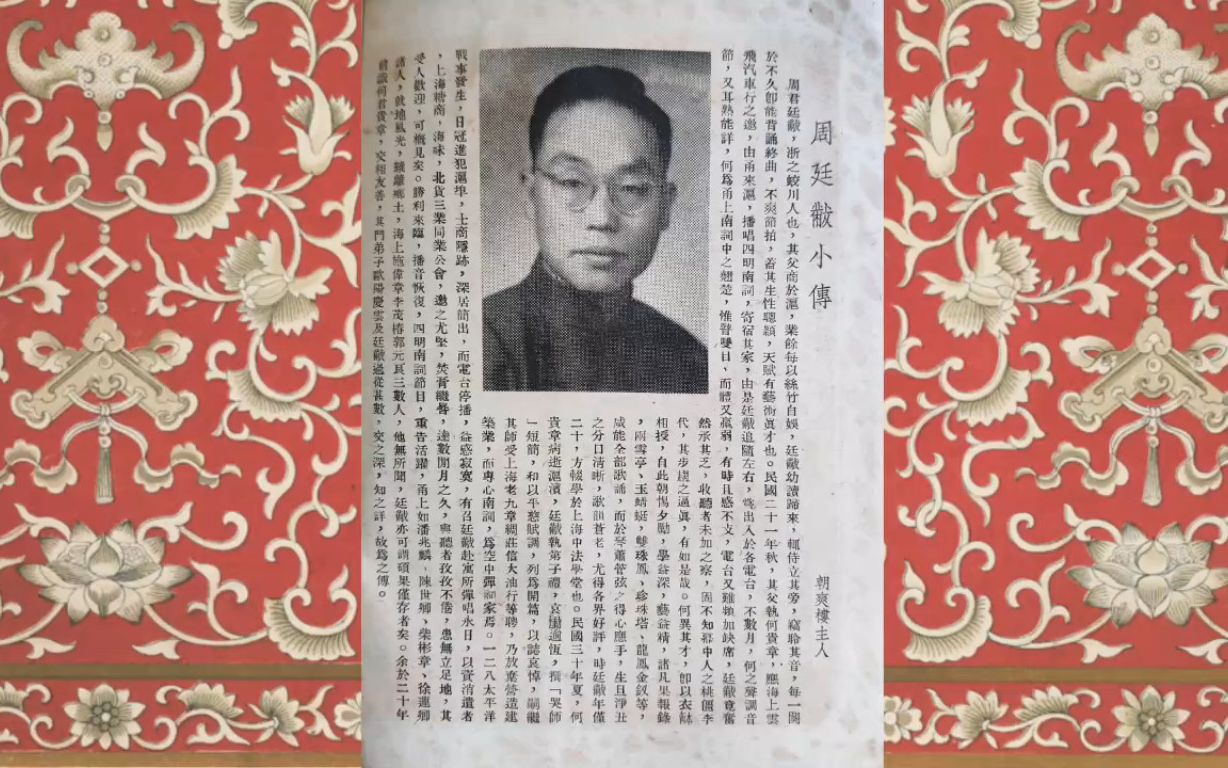 周廷黻小傳
朝爽樓主人
周君廷黻,浙之蛟川人也,其父商於滬,業餘每以絲竹自娛,廷黻幼讀歸來,輒侍立其旁,竊聆其音,每一闋
於不久卽能背誦終曲,不爽節拍,蓋其生性聰穎,天賦有藝術眞才也。民國二十一年秋,其父執何貴章,應海上雲
飛汽車行之邀,由甬來滬,播唱四明南詞,寄宿其家,由是廷黻追隨左右,出入於各電台,不數月,何之聲調音
節,又耳熟能詳,何爲甬上南詞中之翹楚,惟瞽雙目,而體又羸弱,有時且感不支,電台又難頻加缺席,廷黻竟奮
然承其乏,收聽者未加之察,固不知幕中人之桃僵李
代,其步趨之逼眞,有如是哉。何異其才,卽以衣缽
相授,自此朝惕夕勵,學益深,藝益精,諸凡果報錄
,兩雪亭、玉蜻蜓,雙珠鳳、珍珠塔、龍鳳金釵等,
咸能全部歌誦,而於琴簫管弦之得心應手,生旦淨丑
之分口清晰,歌韻蒼老,尤得各界好評,時廷黻年僅
二十,方輟學於上海中法學堂也。民國三十年夏,何
貴章病逝滬濱,廷黻執弟子禮,哀慟逾恆,撰「哭師
」短簡,和以平慈賦調,列爲開篇,以誌哀悼,嗣繼
其師受上海老九章綢莊信大油行等聘,乃放棄營造建
築業,而專心南詞,爲空中彈詞家焉。一二八太平洋
戰事發生,日冠進犯滬埠,士商隱跡,深居簡出,而電台停播,益感寂寞,有召廷黻赴寓所彈唱永日,以資消遣者
,上海糖商,海味,北貨三業同業公會,邀之尤堅,焚膏繼晷,達數閱月之久,與聽者孜孜不倦,患無立足地,其
受人歡迎,可概見矣。勝利來臨,播音恢復,四明南詞節目,重告活躍,甬上如潘兆麟、陳世卿、柴彬章、徐蓮卿
諸人,就地風光,難離鄉土,海上施偉章李茂椿郭元良三數人,他無所聞,廷黻亦可謂碩果僅存者矣。余於二十年
前識何君貴章,交相友善,其門弟子歐陽慶雲及廷黻過從甚數,交之深,知之詳,故爲之傳。